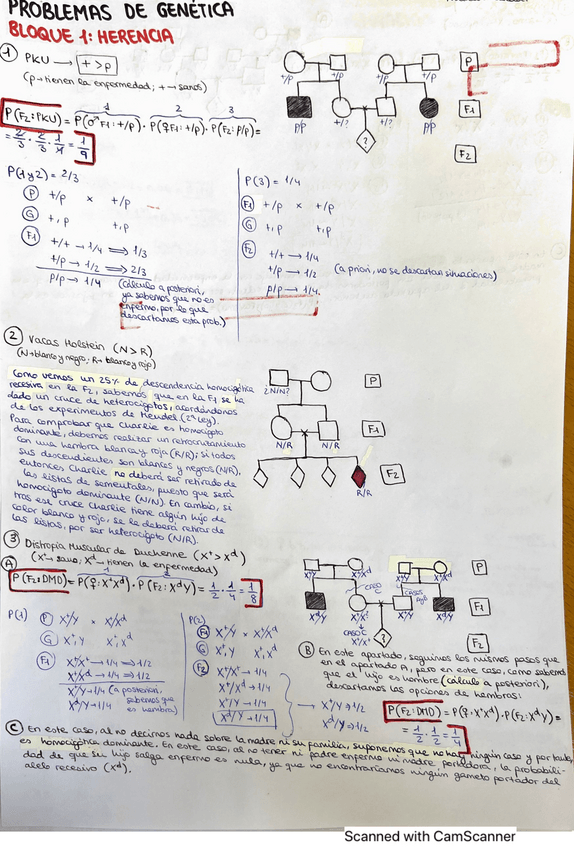 PROBLEMAS DE GENÉTICA
BLOQUE 1: HERENCIA
① PKU → + > p
(p → tienen la enfermedad; + → sanos)
P(F2: PKU) = P(♂F1: +/p) · P(♀F1: +/p) · P(F2: p/p) =
1 2 3
= 2/3 · 2/3 · 1/4 = 1/9
+/p +/p +/p +/p P
p/p +/? +/? p/p F1
? F2
P(1 y 2) = 2/3
P +/p × +/p
G +, p +, p
F1
+/+ → 1/4 ⟹ 1/3
+/p → 1/2 ⟹ 2/3
p/p → 1/4 (cálculo a posteriori,
ya sabemos que no es
enfermo, por lo que
descartamos esta prob.)
P(3) = 1/4
F1 +/p × +/p
G +, p +, p
F2
+/+ → 1/4
+/p → 1/2 (a priori, no se descartan situaciones)
p/p → 1/4.
② Vacas Holstein (N > R)
(N → blanco y negro; R → blanco y rojo)
Como vemos un 25% de descendencia homocigótica
recesiva en la F2, sabemos que en la F1 se ha
dado un cruce de heterocigotos, acordándonos
de los experimentos de Mendel (2ª Ley).
Para comprobar que Charlie es homocigoto
dominante, debemos realizar un retrocruzamiento
con una hembra blanca y roja (R/R); si todos
sus descendientes son blancos y negros (N/R),
entonces Charlie no deberá ser retirado de
las listas de sementales, puesto que será
homocigoto dominante (N/N). En cambio, si
tras ese cruce Charlie tiene algún hijo de
color blanco y rojo, se le deberá retirar de
las listas, por ser heterocigoto (N/R).
¿N/N? P
N/R N/R F1
R/R F2
③ Distrofia Muscular de Duchenne (X⁺ > Xᵈ)
(X⁺ → sano; Xᵈ → tienen la enfermedad)
A
P(F2: DMD) = P(♀: X⁺Xᵈ) · P(F2: XᵈY) = 1/2 · 1/4 = 1/8
1 2
P(1)
P X⁺/Y × X⁺/Xᵈ
G X⁺, Y X⁺, Xᵈ
F1
X⁺/X⁺ → 1/4 ⟹ 1/2
X⁺/Xᵈ → 1/4 ⟹ 1/2
X⁺/Y → 1/4 (a posteriori,
Xᵈ/Y → 1/4 sabemos que
es hembra)
P(2)
F1 X⁺/Y × X⁺/Xᵈ
G X⁺, Y X⁺, Xᵈ
F2
X⁺/X⁺ → 1/4
X⁺/Xᵈ → 1/4
X⁺/Y → 1/4
Xᵈ/Y → 1/4
→ X⁺/Y → 1/2
Xᵈ/Y → 1/2
X⁺/Y X⁺/Xᵈ X⁺/Y P
Xᵈ/Y X⁺/Y Xᵈ/Y F1
CASO C
CASOS A y B
CASO C:
X⁺/X⁺
? F2
B En este apartado, seguimos los mismos pasos que
en el apartado A, pero en este caso, como sabemos
que el hijo es hombre (cálculo a posteriori),
descartamos las opciones de hembras:
P(F2: DMD) = P(♀: X⁺Xᵈ) · P(F2: XᵈY) =
= 1/2 · 1/2 = 1/4
C En este caso, al no decirnos nada sobre la madre ni su familia, suponemos que no hay ningún caso y por tanto,
es homocigótica dominante. En este caso, al no tener ni padre enfermo ni madre portadora, la probabili-
dad de que su hijo salga enfermo es nula, ya que no encontraríamos ningún gameto portador del
alelo recesivo (Xᵈ).
Scanned with CamScanner